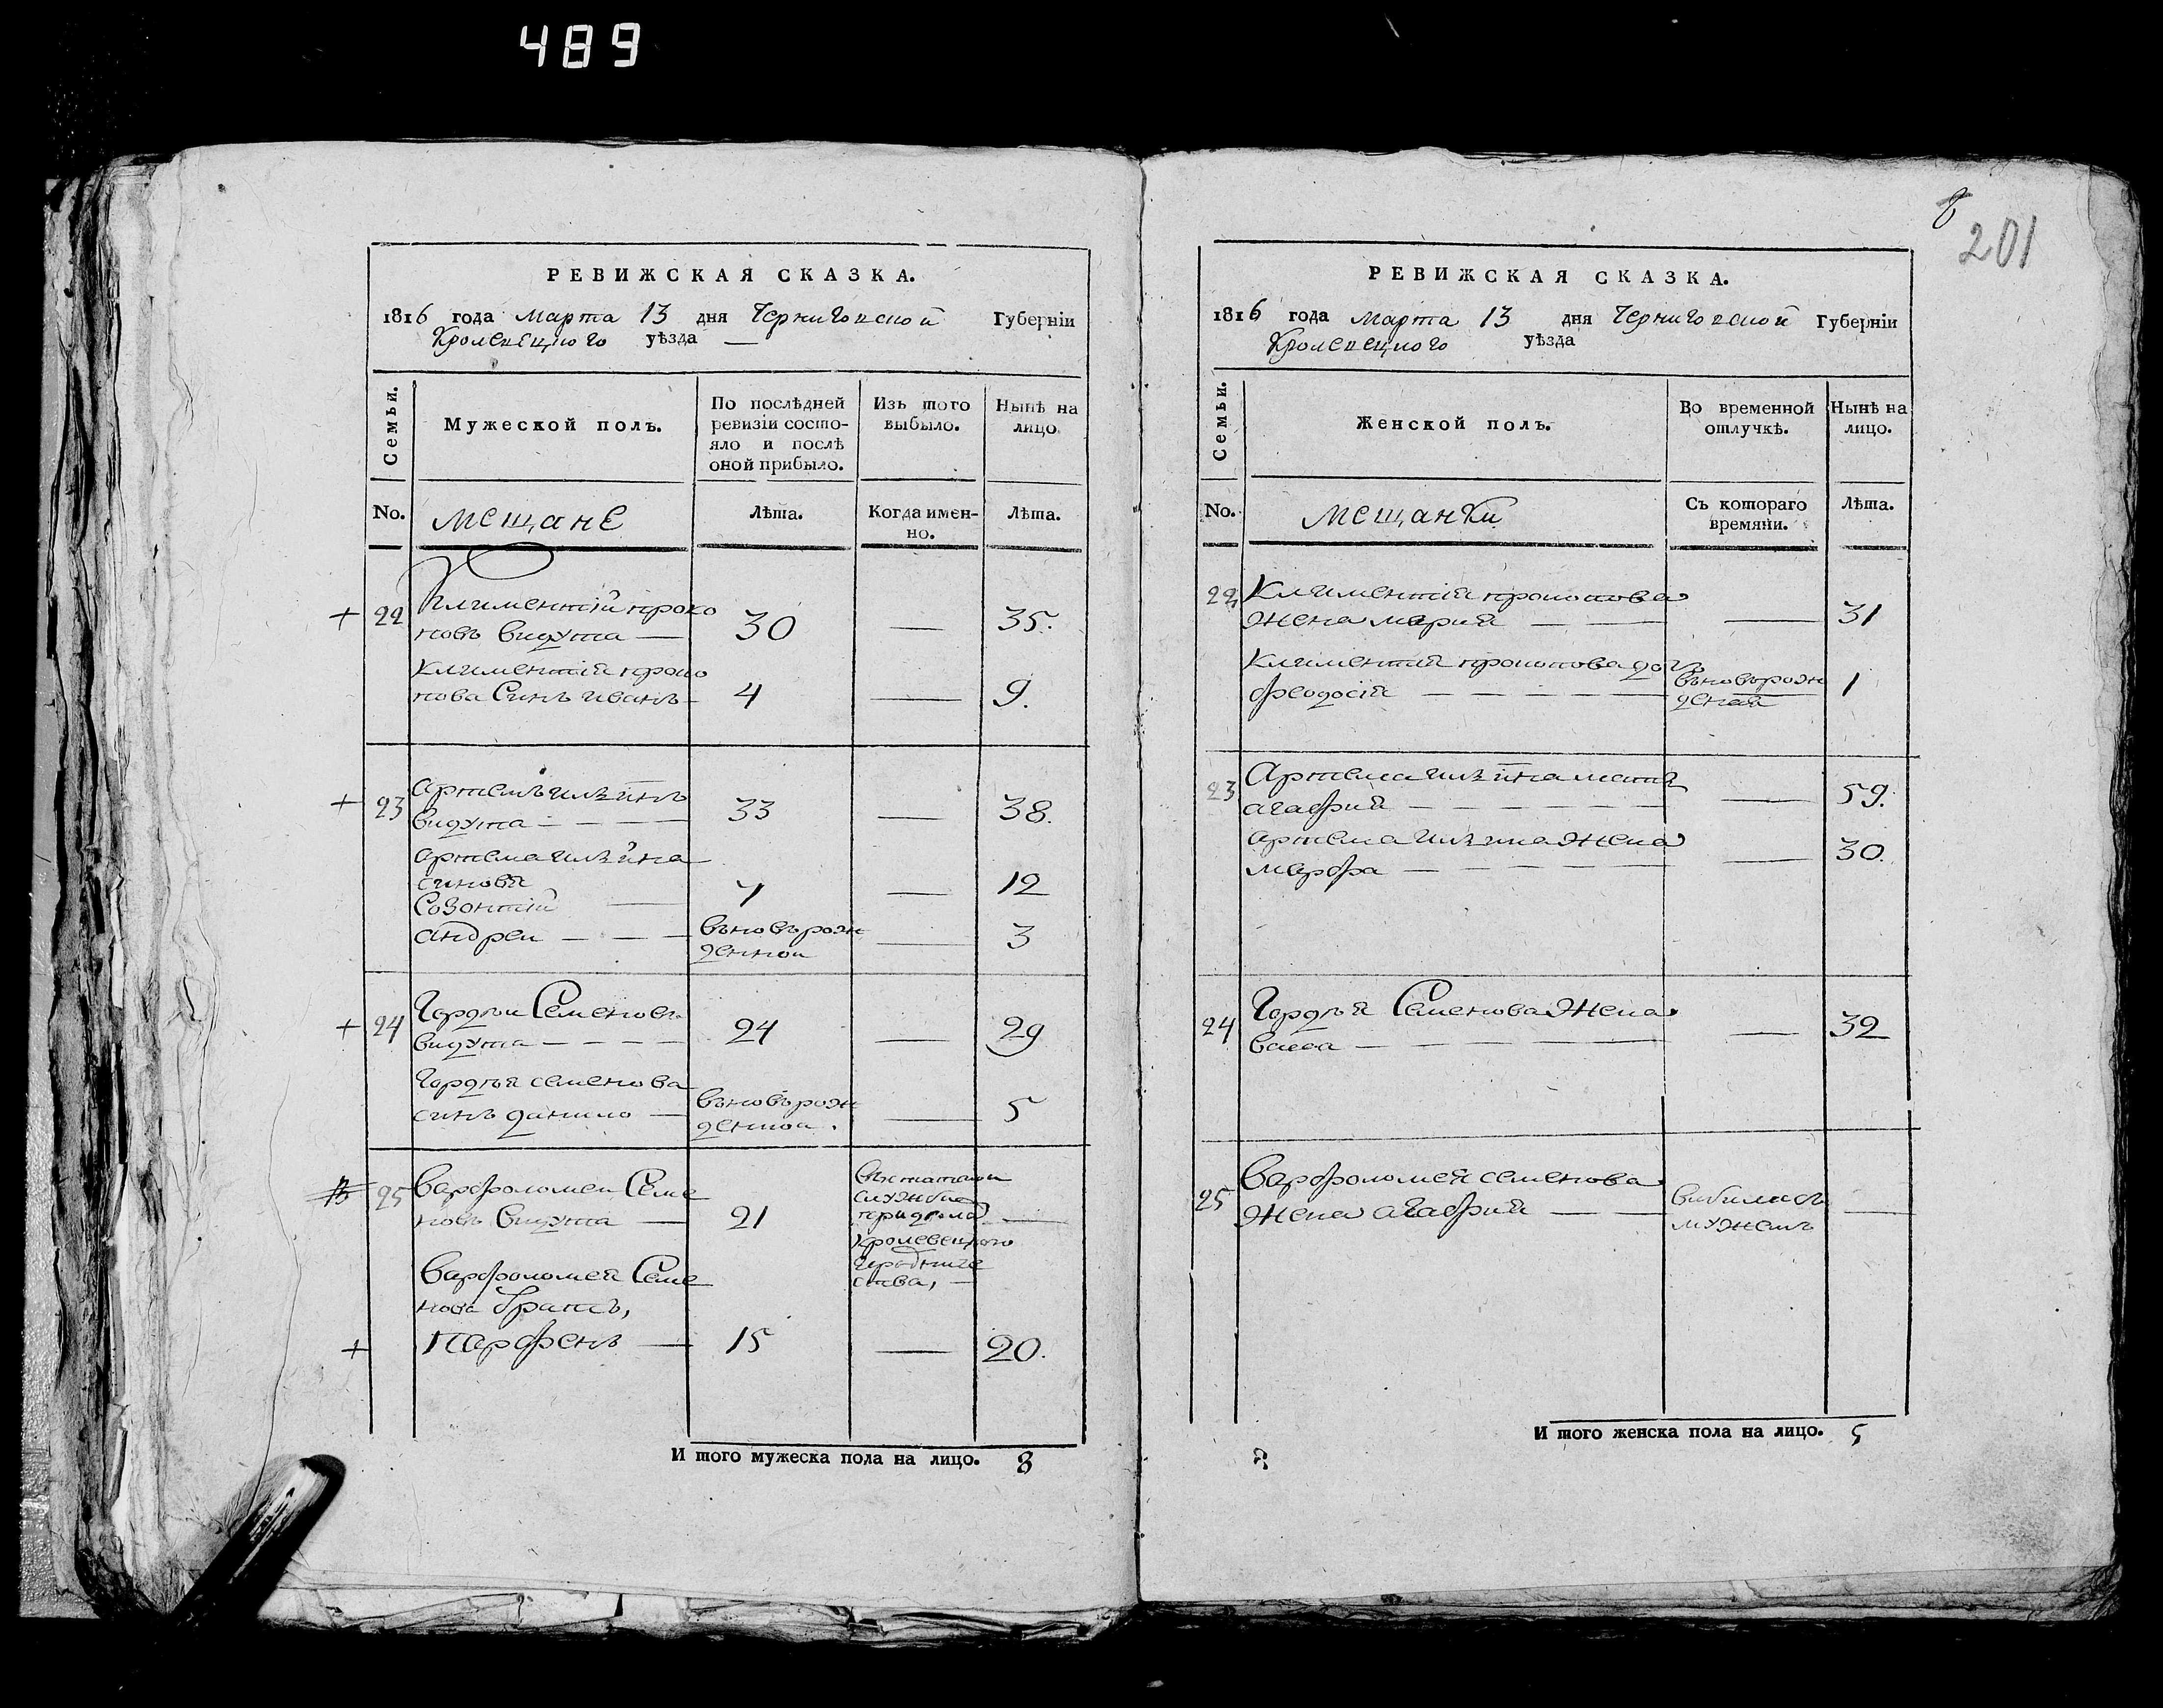 489
РЕВИЖСКАЯ СКАЗКА.
1816 года Марта 13 дня Черниговской Губерніи
Кролевецкого уѣзда —
Семьи.
Мужеской полъ.
По послѣдней
ревизіи состо-
яло и послѣ
оной прибыло.
Изъ того
выбыло.
Нынѣ на
лицо.
No.
Мещане
Лѣта.
Когда имен-
но.
Лѣта.
+ 22 Климентій проко
повъ Видута — 30 — 35.
Климентія проко
пова Синъ иванъ 4 — 9.
+ 23 Артемъ
видута — 33 — 38.
Артема
синовя
Созонтій — 7 — 12
Андреи — вновърож
денной — 3
+ 24 Гордѣи Семеновъ
видута — 24 — 29
Гордѣя семенова
синъ данило — вновърож
денной. — 5
25 Варфоломеи Семе
новъ Видута — 21
служби
при дѣлах
Кролевецкого
городниче
ства, —
Варфоломея Семе
нова братъ,
+ Парфенъ — 15 — 20.
И того мужеска пола на лицо. 8
201
РЕВИЖСКАЯ СКАЗКА.
1816 года Марта 13 дня Черниговской Губерніи
Кролевецкого уѣзда
Семьи.
Женской полъ.
Во временной
отлучкѣ.
Нынѣ на
лицо.
No.
Мещанки
Съ котораго
времяни.
Лѣта.
22 Климентія прокопова
жена мария — — 31
Климентия прокопова доч
феодосія — вновърож
деная 1
23 Артема мать
агафия — — 59.
Артема жена
марфа — — 30.
24 Гордѣя Семенова жена
васса — — 32
25 Варфоломея семенова
жена агафия — вибила съ
мужемъ —
И того женска пола на лицо. 5